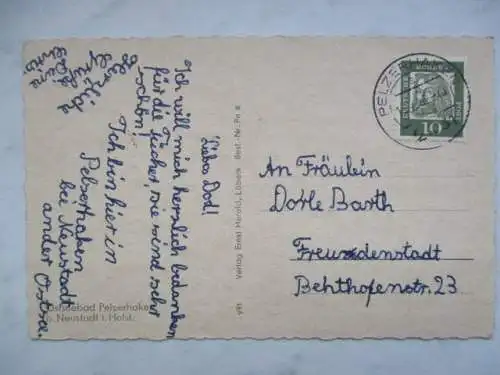 Liebes Dod!
Ich will mich herzlich bedanken
für die Tücher, sie sind sehr
schön!
Ich bin hier in
Pelzerhaken
bei Neustadt
an der Ostsee.
Herzliche
Grüße
Deine
Ostseebad Pelzerhaken
b. Neustadt i. Holst.
Verlag Ernst Harold, Lübeck Best.-Nr. Pe
PELZERHA
DEUTSCHE
POST
10
An Fräulein
Dorle Barth
Freudenstadt
Behthofenstr. 23